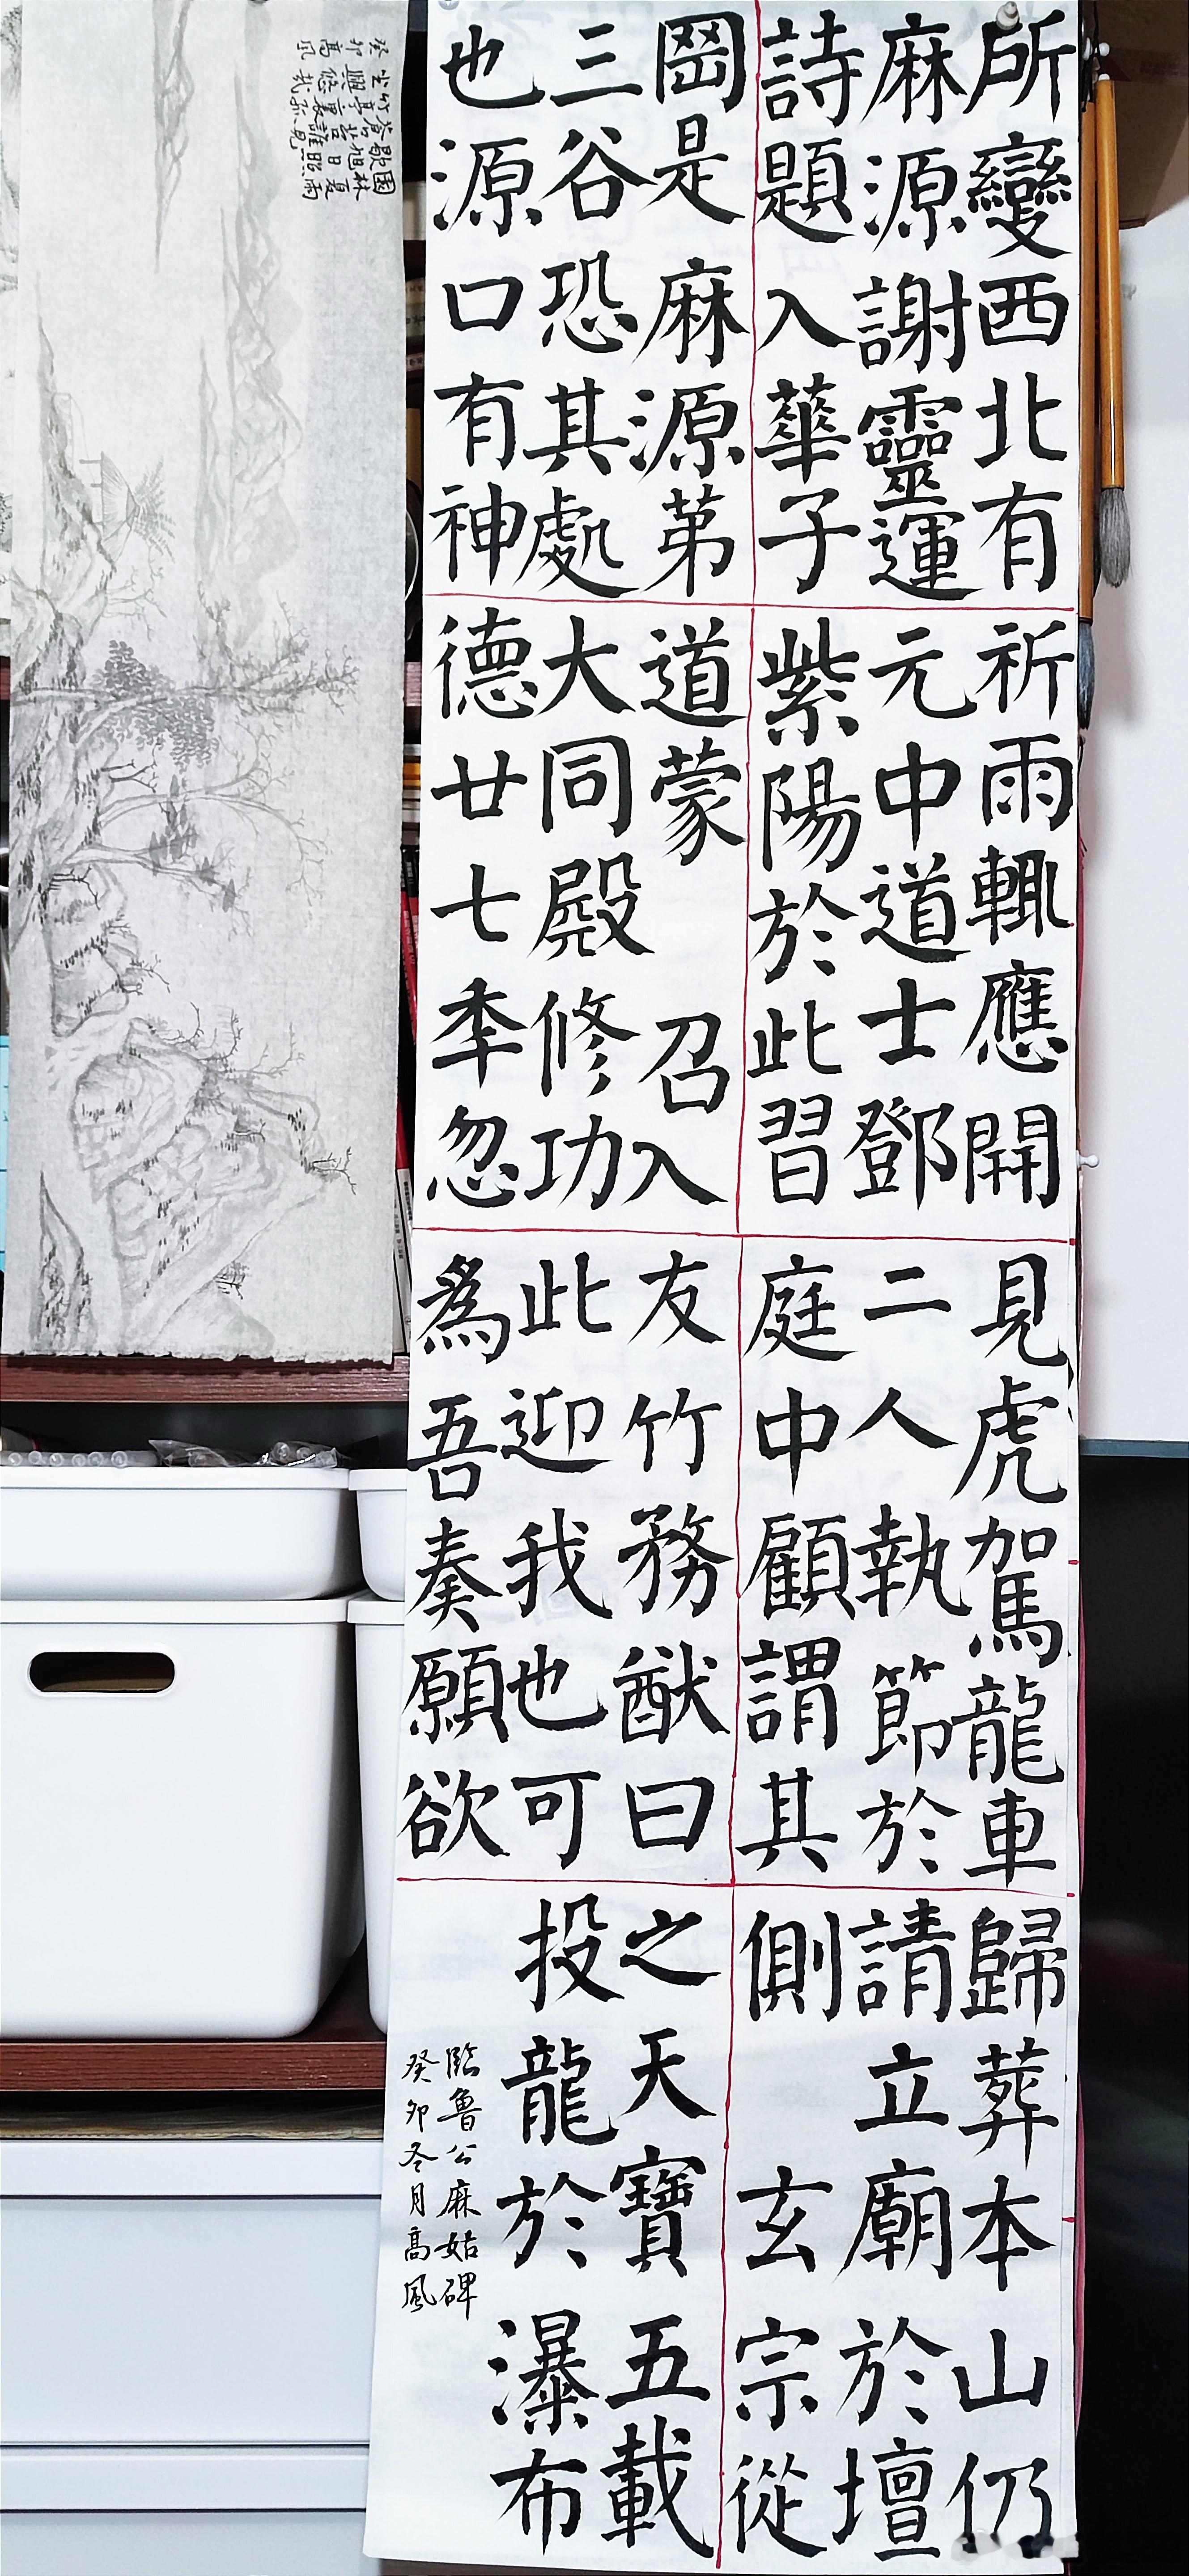 所變西北有
麻源謝靈運
詩題入華子
岡是麻源第
三谷恐其處
也源口有神
祈雨輒應開
元中道士鄧
紫陽於此習
道蒙 召入
大同殿修功
德廿七季忽
見虎駕龍車
二人執節於
庭中顧謂其
友竹務猷曰
此迎我也可
為吾奏願欲
歸葬本山仍
請立廟於壇
側 玄宗從
之天寶五載
投龍於瀑布
臨魯公麻姑碑
癸卯冬月高風
園林夏雨
癸卯高風